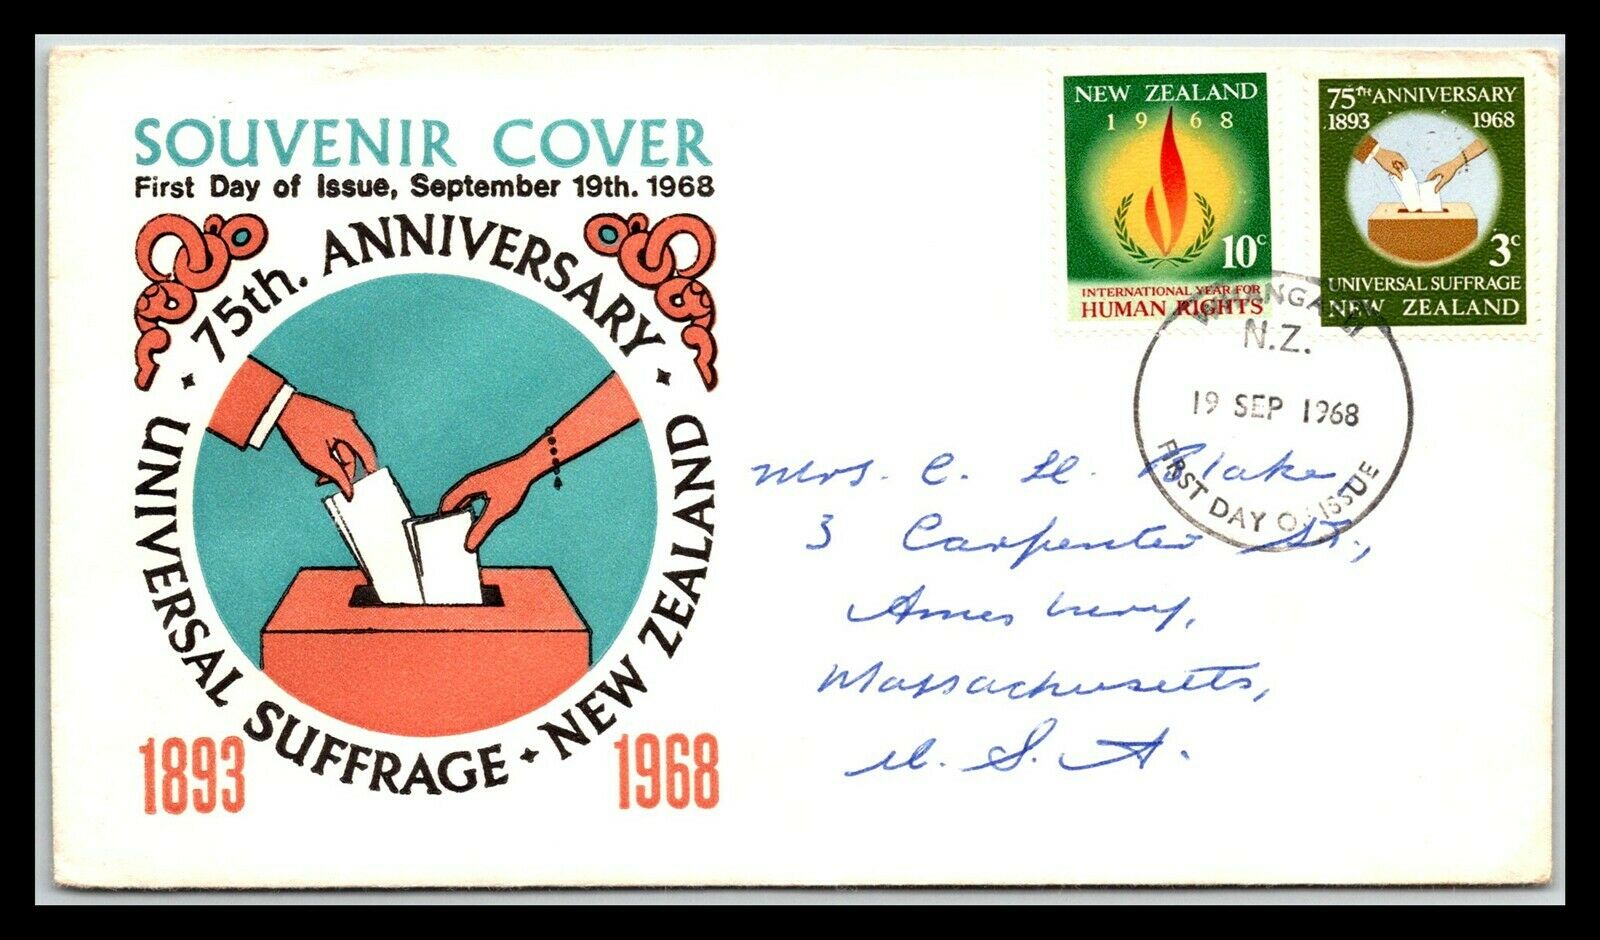 SOUVENIR COVER
First Day of Issue, September 19th. 1968
75th. ANNIVERSARY
UNIVERSAL SUFFRAGE • NEW ZEALAND
1893
1968
NEW ZEALAND
1968
10c
INTERNATIONAL YEAR FOR
HUMAN RIGHTS
75TH ANNIVERSARY
1893 1968
3c
UNIVERSAL SUFFRAGE
NEW ZEALAND
N.Z.
19 SEP 1968
FIRST DAY OF ISSUE
Mrs. C. H. Blake,
3 Carpenter St.,
Amesbury,
Massachusetts,
U. S. A.